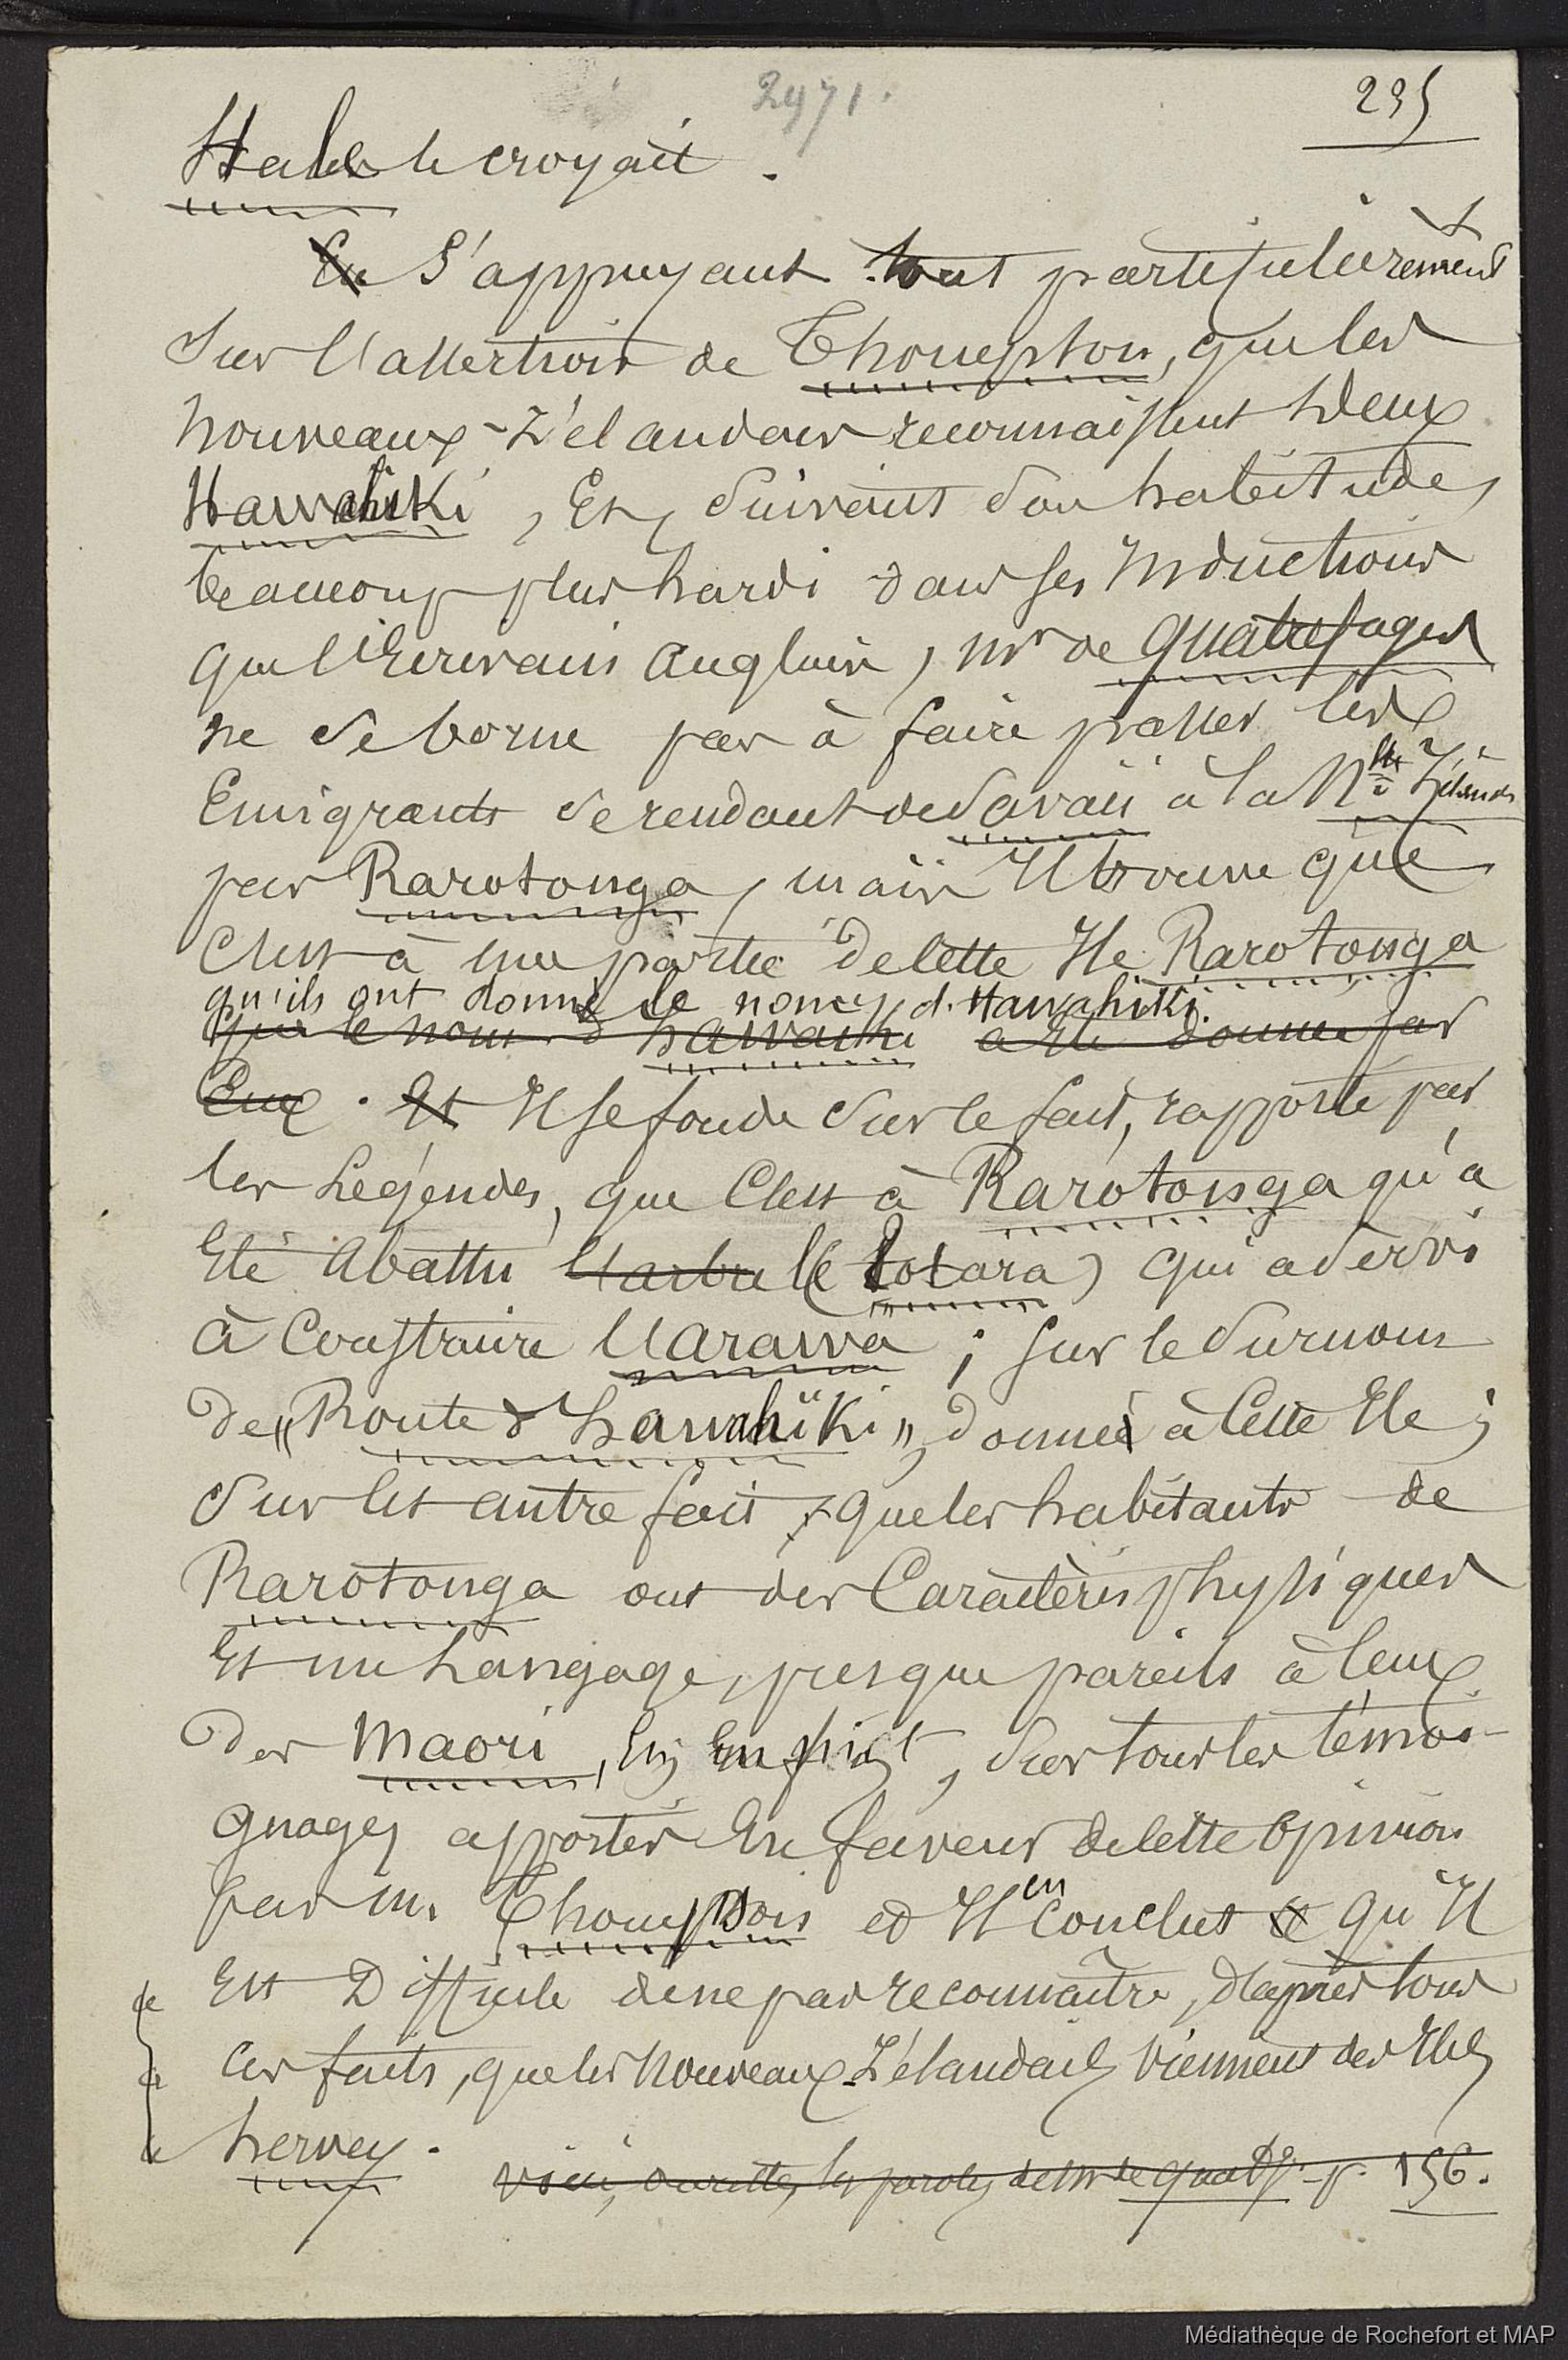 2971.
235
Hale le croyait.
En S'appuyant tout particulièrement
Sur l'assertion de Thompson, que les
nouveaux-Zélandais reconnaissent deux
Hawahiki, Et, suivant son habitude,
beaucoup plus hardi dans ses Inductions
que l'Ecrivain Anglais, Mr de Quatrefages
ne se borne pas à faire passer les
Emigrants se rendant de Savaii à la Nlle Zélande
par Rarotonga, mais Il trouve que
C'est à une partie de Cette Ile Rarotonga
qu'ils ont donné le nom d'Hawahiki.
que le nom d'hawaiki a Eté donné par
Eux. Et Il se fonde Sur le fait, rapporté par
les Légendes, que C'est à Rarotonga qu'a
Eté Abattu l'arbre (le totara) qui a servi
à Construire l'Arawa ; sur le Surnom
de « Route d'hawahiki », donné à Cette Ile ;
Sur cet autre fait, que les habitants de
Rarotonga ont des Caractères physiques
Et un Langage, presque pareils à Ceux
des Maori, Et, Enfin, Sur tous les témoi-
gnages apportés En faveur de Cette Opinion
par M. Thompson et Il en Conclut qu'Il
Est Difficile de ne pas reconnaître, d'après tous
Ces faits, que les Nouveaux-Zélandais viennent des Iles
hervey.
Voici, du reste, les paroles de Mr de Quatref. p. 156.
Médiathèque de Rochefort et MAP